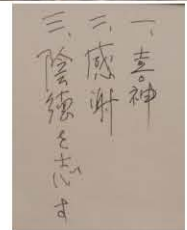 一、喜神
二、感谢
三、陰德を志す